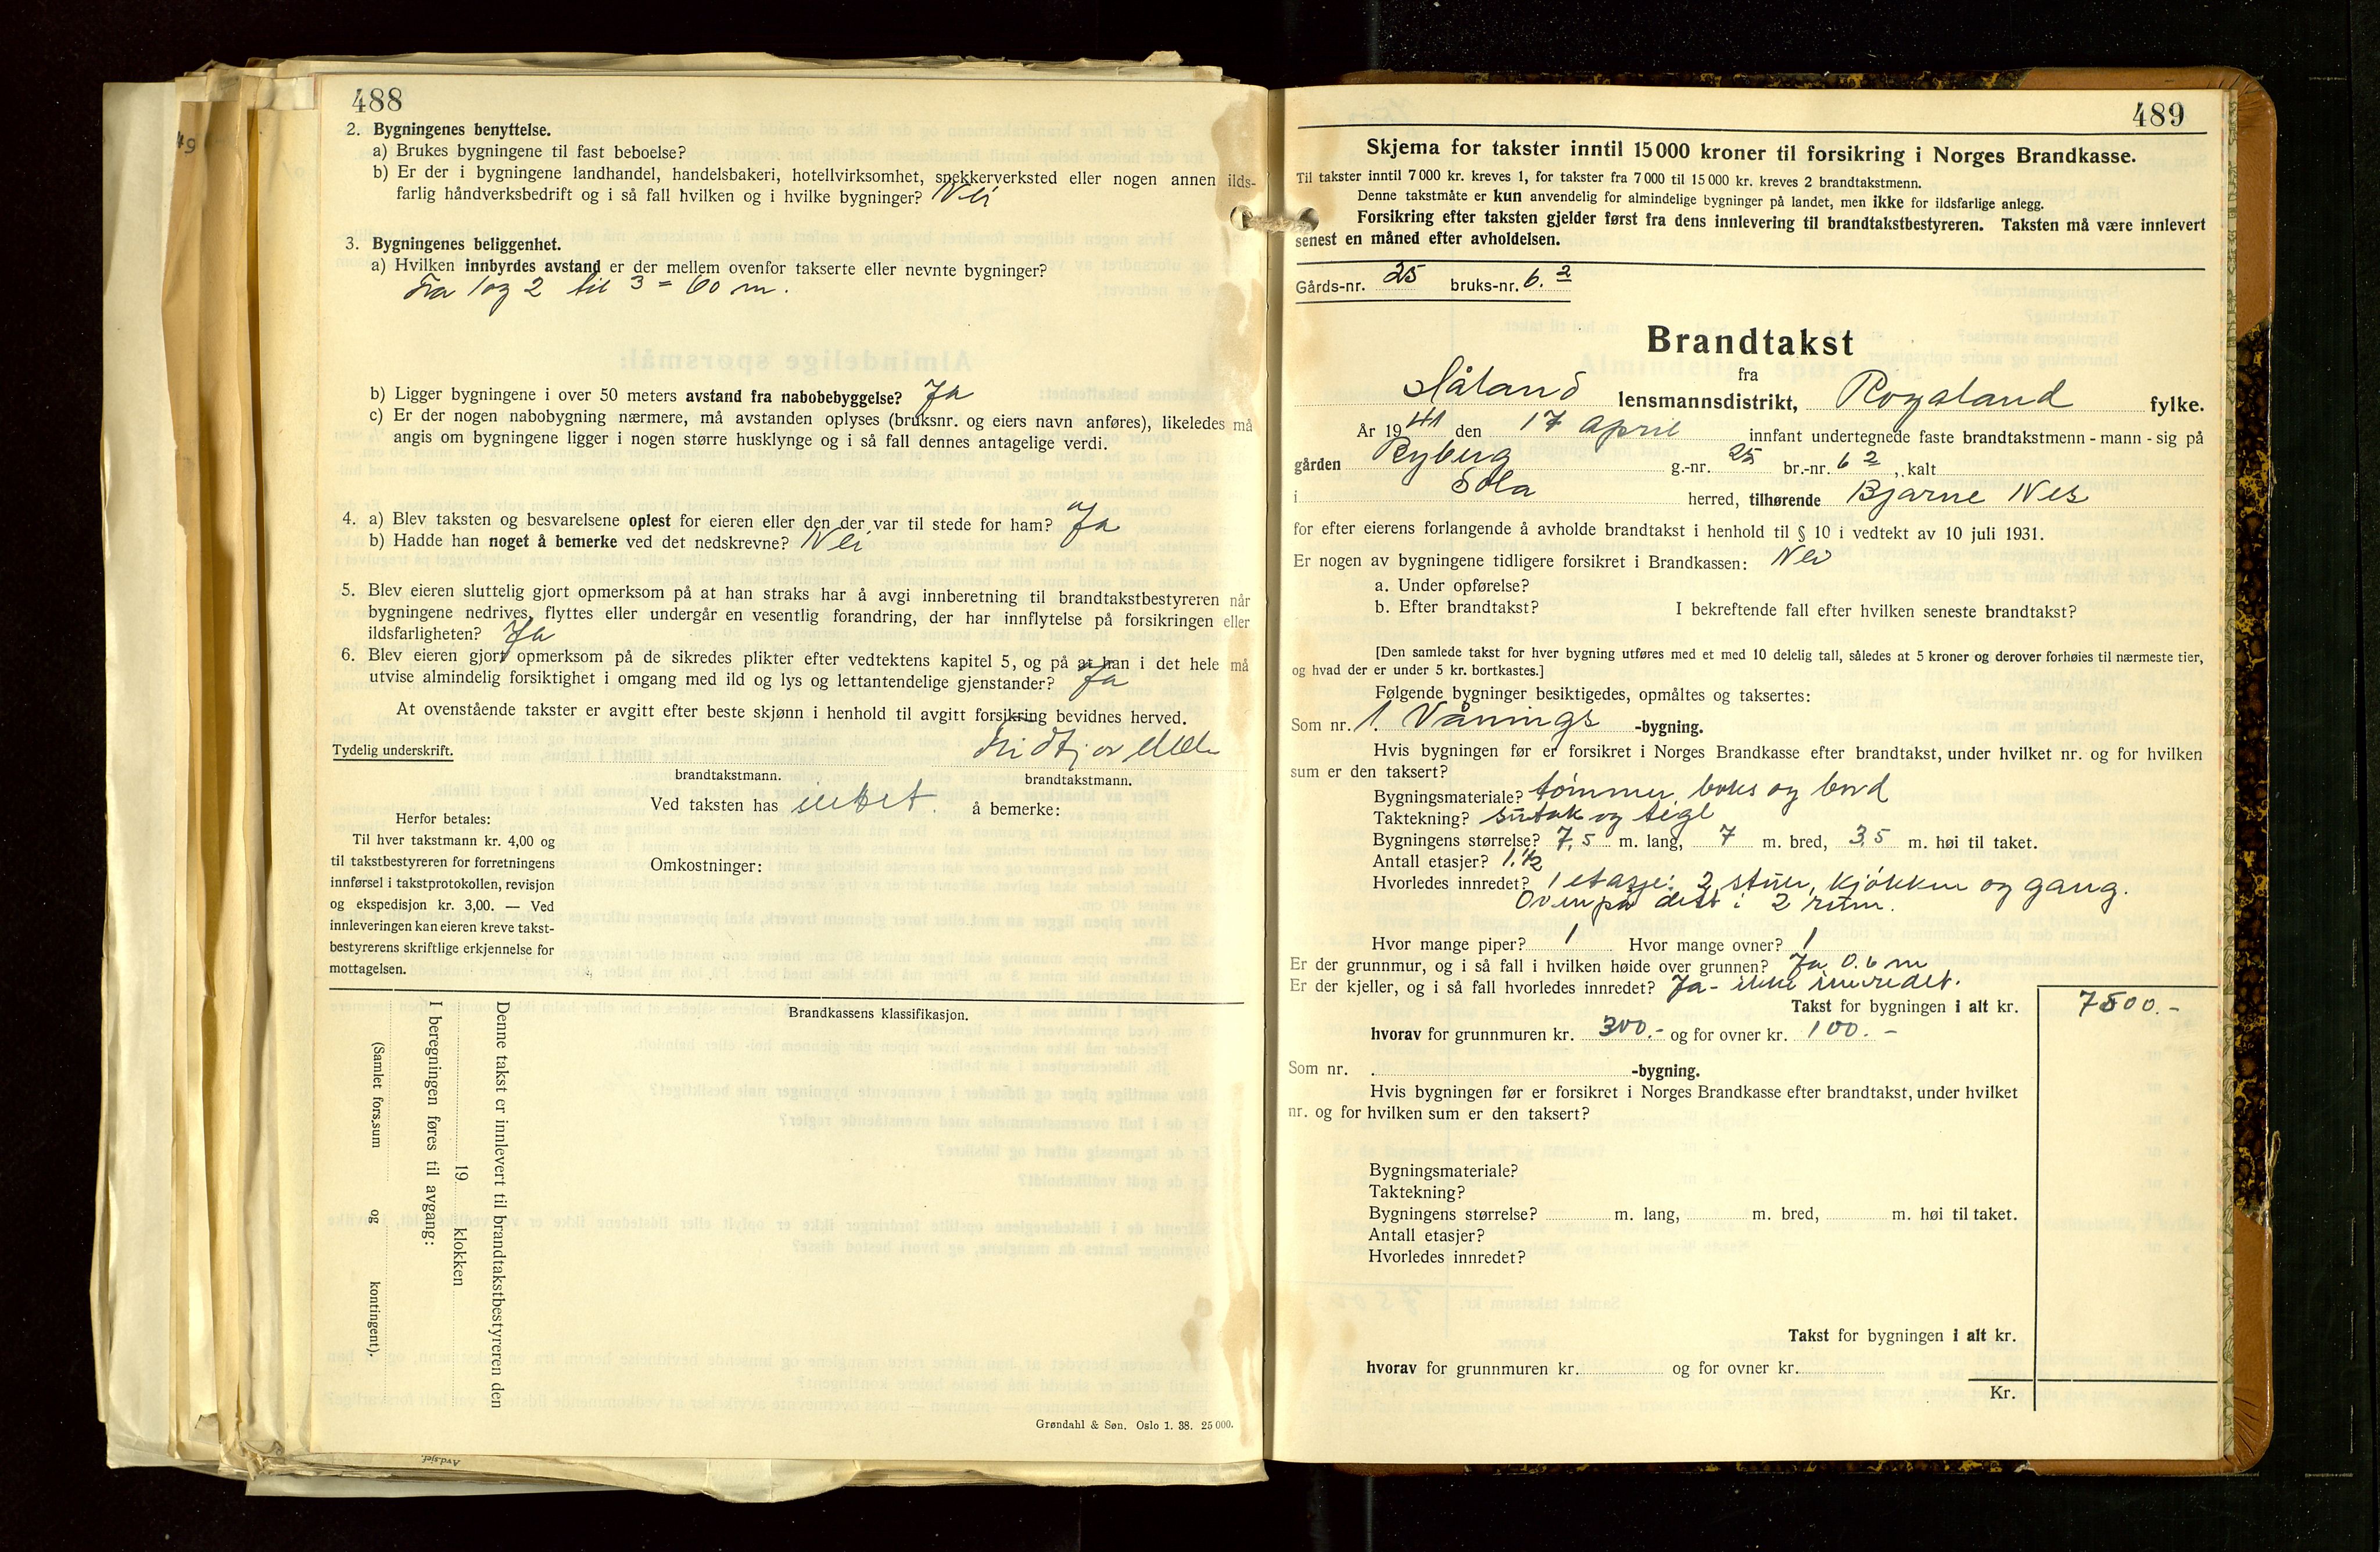 488
2. Bygningenes benyttelse.
a) Brukes bygningene til fast beboelse?
b) Er der i bygningene landhandel, handelsbakeri, hotellvirksomhet, snekkerverksted eller nogen annen ilds-
farlig håndverksbedrift og i så fall hvilken og i hvilke bygninger? Nei
3. Bygningenes beliggenhet.
a) Hvilken innbyrdes avstand er der mellem ovenfor takserte eller nevnte bygninger?
fra 1 og 2 til 3 = 60 m.
b) Ligger bygningene i over 50 meters avstand fra nabobebyggelse? Ja
c) Er der nogen nabobygning nærmere, må avstanden oplyses (bruksnr. og eiers navn anføres), likeledes må
angis om bygningene ligger i nogen større husklynge og i så fall dennes antagelige verdi.
4. a) Blev taksten og besvarelsene oplest for eieren eller den der var til stede for ham? Ja
b) Hadde han noget å bemerke ved det nedskrevne? Nei
5. Blev eieren sluttelig gjort opmerksom på at han straks har å avgi innberetning til brandtakstbestyreren når
bygningene nedrives, flyttes eller undergår en vesentlig forandring, der har innflytelse på forsikringen eller
ildsfarligheten? Ja
6. Blev eieren gjort opmerksom på de sikredes plikter efter vedtektens kapitel 5, og på at han i det hele må
utvise almindelig forsiktighet i omgang med ild og lys og lettantendelige gjenstander? Ja
At ovenstående takster er avgitt efter beste skjønn i henhold til avgitt forsikring bevidnes herved.
Tydelig underskrift.
brandtakstmann. brandtakstmann.
Ved taksten has intet å bemerke:
Herfor betales:
Til hver takstmann kr. 4,00 og
til takstbestyreren for forretningens
innførsel i takstprotokollen, revisjon
og ekspedisjon kr. 3,00. — Ved
innleveringen kan eieren kreve takst-
bestyrerens skriftlige erkjennelse for
mottagelsen.
Omkostninger:
Brandkassens klassifikasjon.
Denne takst er innlevert til brandtakstbestyreren den
19 klokken
I beregningen føres til avgang:
(Samlet fors.sum og kontingent).
Grøndahl & Søn. Oslo 1. 38. 25 000.
489
Skjema for takster inntil 15 000 kroner til forsikring i Norges Brandkasse.
Til takster inntil 7 000 kr. kreves 1, for takster fra 7 000 til 15 000 kr. kreves 2 brandtakstmenn.
Denne takstmåte er kun anvendelig for almindelige bygninger på landet, men ikke for ildsfarlige anlegg.
Forsikring efter taksten gjelder først fra dens innlevering til brandtakstbestyreren. Taksten må være innlevert
senest en måned efter avholdelsen.
Gårds-nr. 25 bruks-nr. 62
Brandtakst
fra
Håland lensmannsdistrikt, Rogaland fylke.
År 1941 den 17 April innfant undertegnede faste brandtakstmenn - mann - sig på
gården Ryberg g.-nr. 25 br.-nr. 62, kalt
i Sola herred, tilhørende Bjarne Nes
for efter eierens forlangende å avholde brandtakst i henhold til § 10 i vedtekt av 10 juli 1931.
Er nogen av bygningene tidligere forsikret i Brandkassen: Nei
a. Under opførelse?
b. Efter brandtakst? I bekreftende fall efter hvilken seneste brandtakst?
[Den samlede takst for hver bygning utføres med et med 10 delelig tall, således at 5 kroner og derover forhøies til nærmeste tier,
og hvad der er under 5 kr. bortkastes.]
Følgende bygninger besiktigedes, opmåltes og taksertes:
Som nr. 1. Vånings -bygning.
Hvis bygningen før er forsikret i Norges Brandkasse efter brandtakst, under hvilket nr. og for hvilken
sum er den taksert?
Bygningsmateriale? tømmer boks og bord
Taktekning? sutak og tegl
Bygningens størrelse? 7,5 m. lang, 7 m. bred, 3,5 m. høi til taket.
Antall etasjer? 1.1/2
Hvorledes innredet? 1 etasje: 2 stuer, kjøkken og gang.
Ovenpå delt i 2 rum.
Hvor mange piper? 1 Hvor mange ovner? 1
Er der grunnmur, og i så fall i hvilken høide over grunnen? Ja 0.6 m
Er der kjeller, og i så fall hvorledes innredet? Ja - ikke innredet.
Takst for bygningen i alt kr. 7500.-
hvorav for grunnmuren kr. 300.- og for ovner kr. 100.-
Som nr. -bygning.
Hvis bygningen før er forsikret i Norges Brandkasse efter brandtakst, under hvilket
nr. og for hvilken sum er den taksert?
Bygningsmateriale?
Taktekning?
Bygningens størrelse? m. lang, m. bred, m. høi til taket.
Antall etasjer?
Hvorledes innredet?
Takst for bygningen i alt kr.
hvorav for grunnmuren kr. og for ovner kr.
Kr.